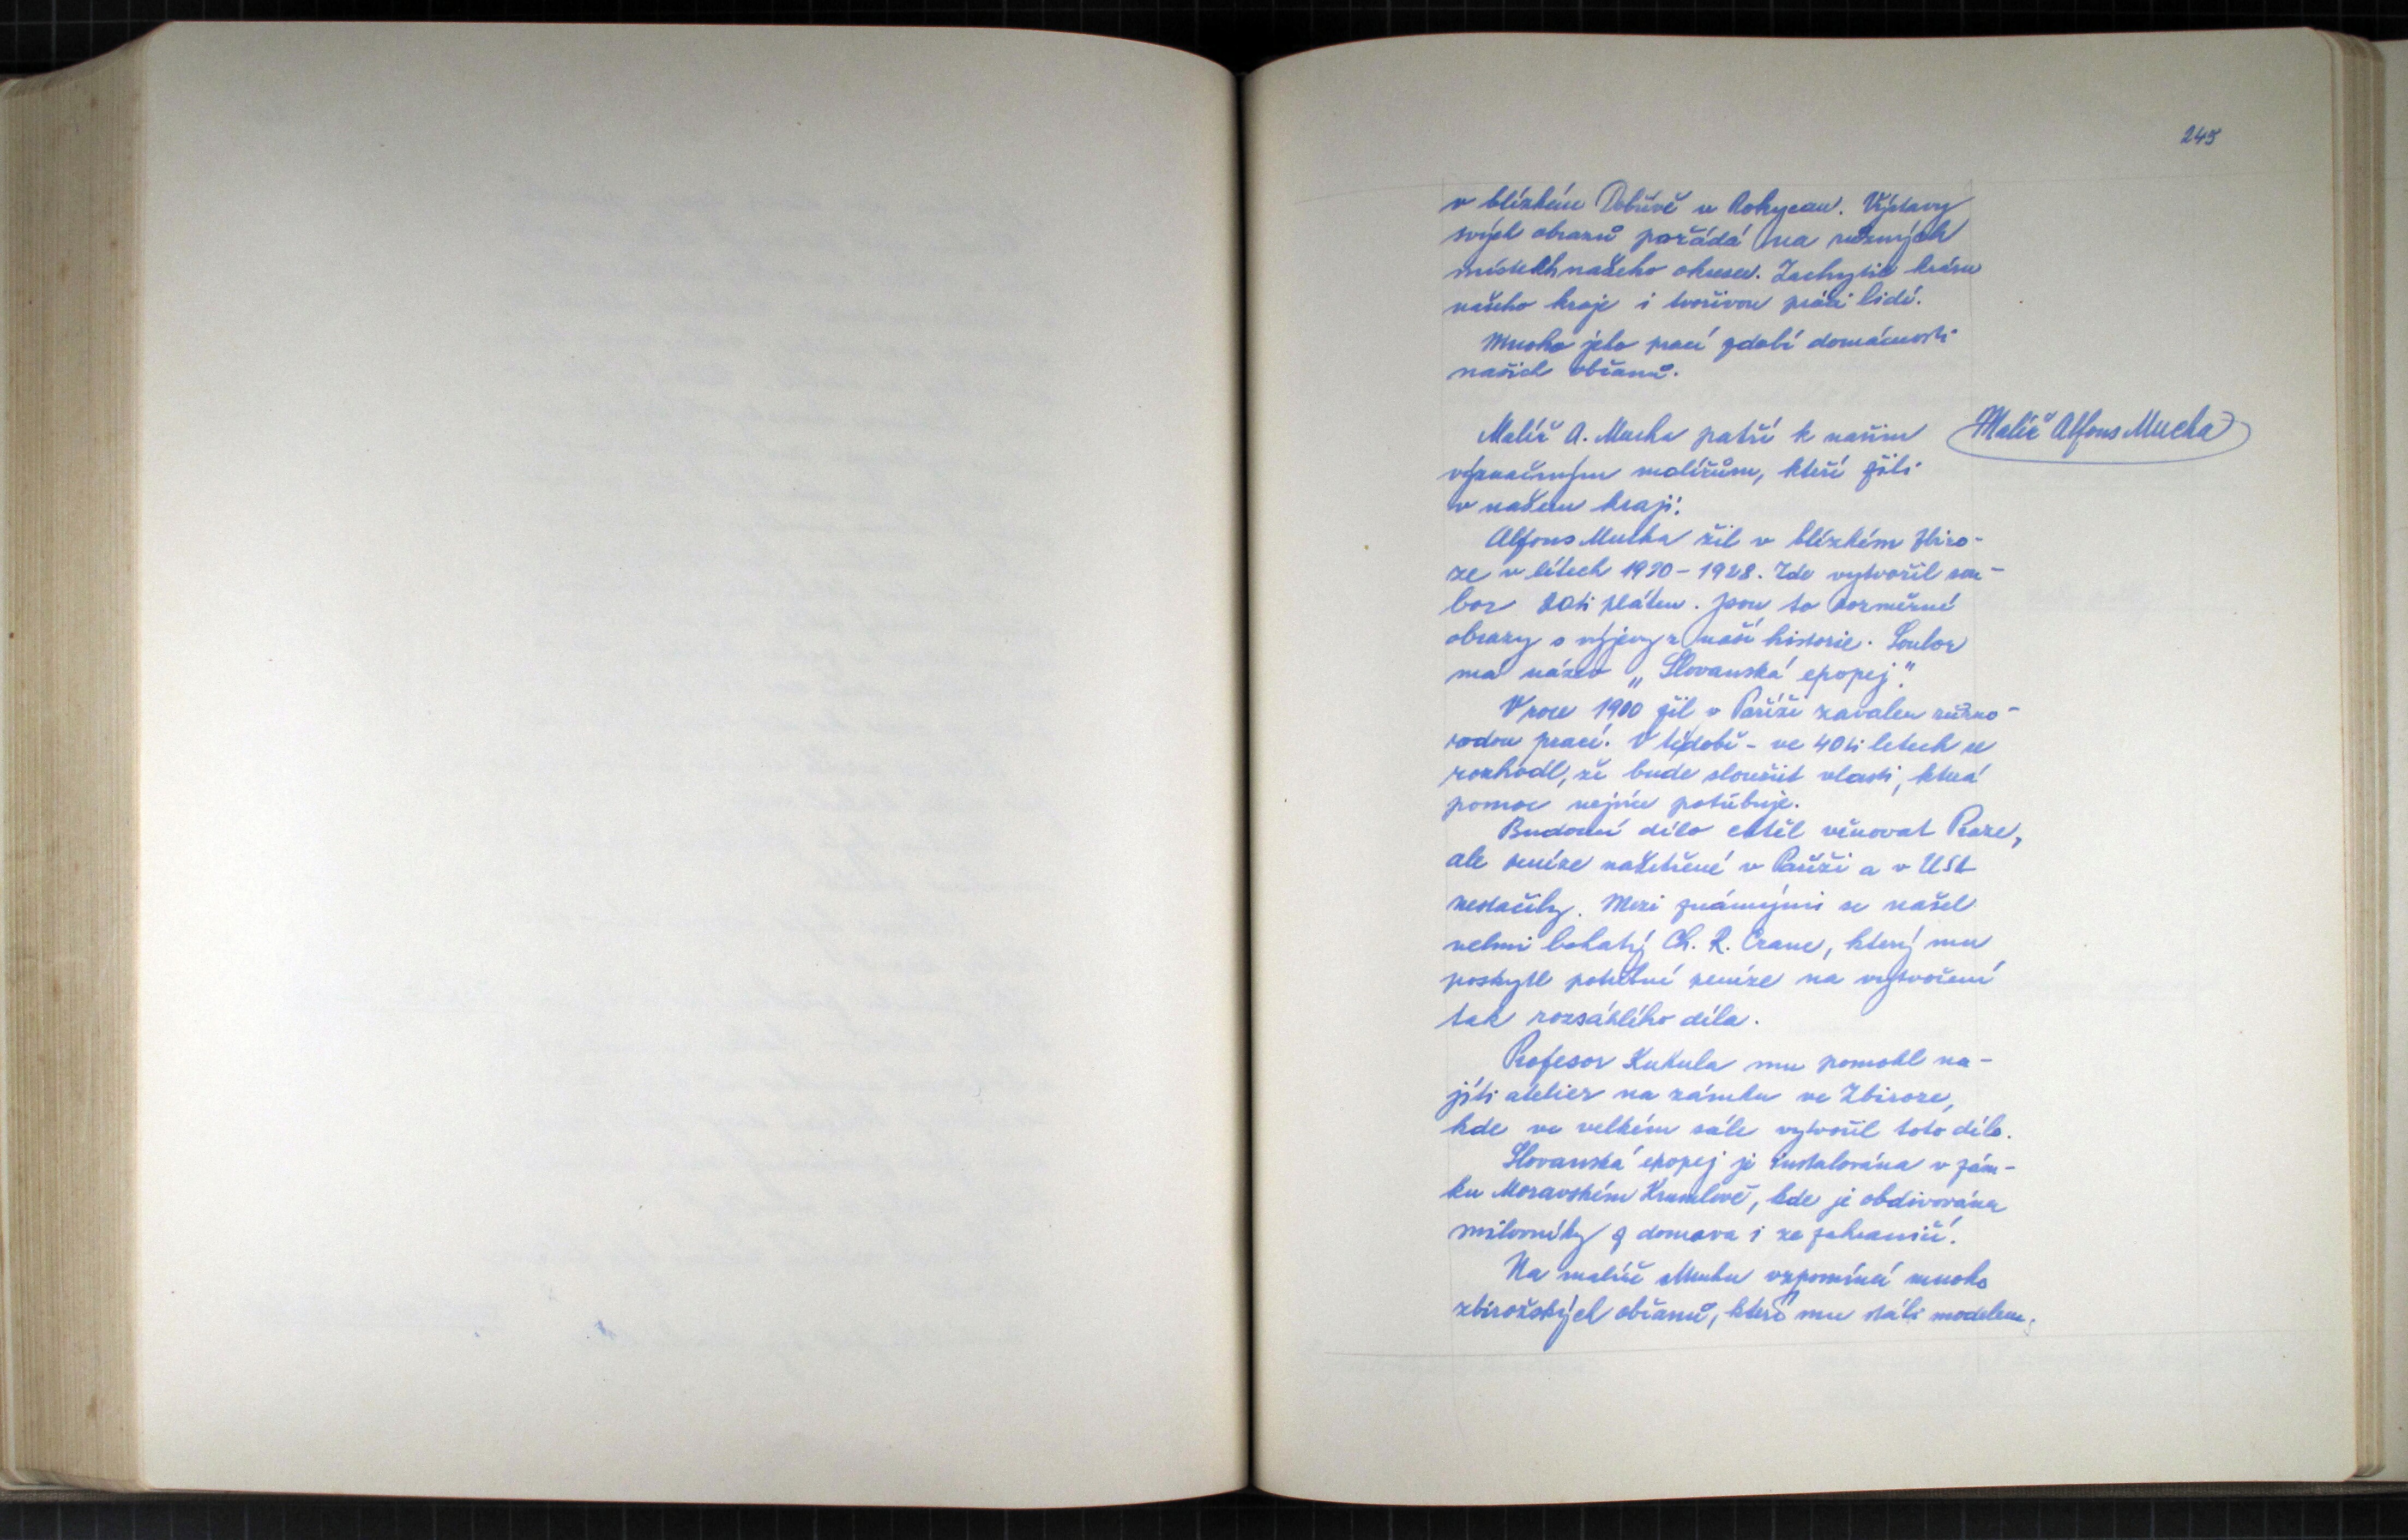 245
v blízkém Dobřívě u Rokycan. Výstavy
svých obrazů pořádá na různých
místech našeho okresu. Zachytil krásu
našeho kraje i tvořivou práci lidí.
Mnoho jeho prací zdobí domácnosti
našich občanů.
Malíř Alfons Mucha
Malíř A. Mucha patří k našim
význačným malířům, kteří žili
v našem kraji.
Alfons Mucha žil v blízkém Zbiro-
ze v létech 1920 - 1928. Zde vytvořil sou-
bor 20ti pláten. Jsou to rozměrné
obrazy s výjevy z naší historie. Soubor
má název „Slovanská epopej".
V roce 1900 žil v Paříži zavalen různo-
rodou prací. V té době - ve 40ti letech se
rozhodl, že bude sloužit vlasti, která
pomoc nejvíce potřebuje.
Budoucí dílo chtěl věnovat Praze,
ale peníze našetřené v Paříži a v USA
nestačily. Mezi známými se našel
velmi bohatý Ch. R. Crane, který mu
poskytl potřebné peníze na vytvoření
tak rozsáhlého díla.
Profesor Kukula mu pomohl na-
jíti atelier na zámku ve Zbiroze,
kde ve velkém sále vytvořil toto dílo.
Slovanská epopej je instalována v zám-
ku Moravském Krumlově, kde je obdivována
milovníky z domova i ze zahraničí.
Na malíře Muchu vzpomíná mnoho
zbirožských občanů, kteří mu stáli modelem.